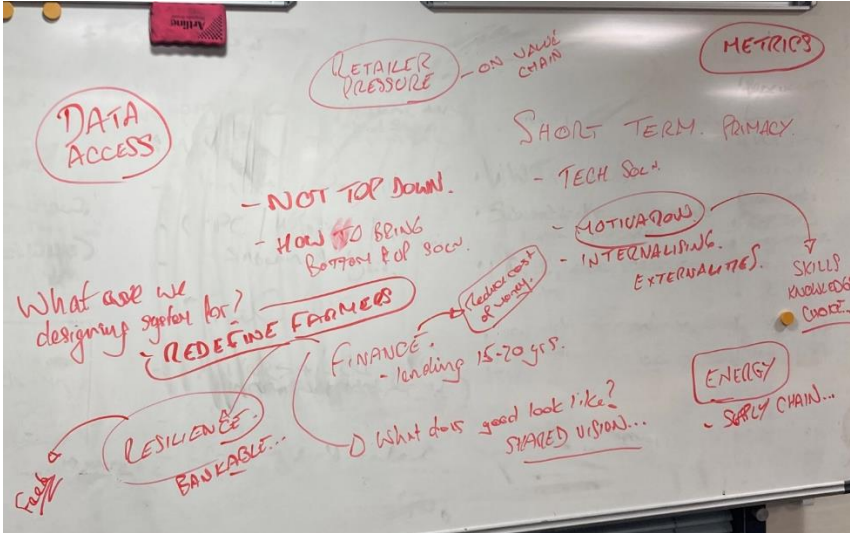 Artline
RETAILER
PRESSURE
- ON VALUE
CHAIN
METRICS
DATA
ACCESS
SHORT TERM. PRIMACY.
- TECH SOLN.
- NOT TOP DOWN.
- HOW TO BRING
BOTTOM UP SOLN.
- MOTIVATION
- INTERNALISING.
EXTERNALITIES.
SKILLS
KNOWLEDGE
CHOICE...
What are we
designing system for?
- REDEFINE FARMERS
Reduce cost
of money.
FINANCE.
- lending 15-20 yrs.
ENERGY
- SUPPLY CHAIN...
What does good look like?
SHARED VISION...
RESILIENCE.
BANKABLE...